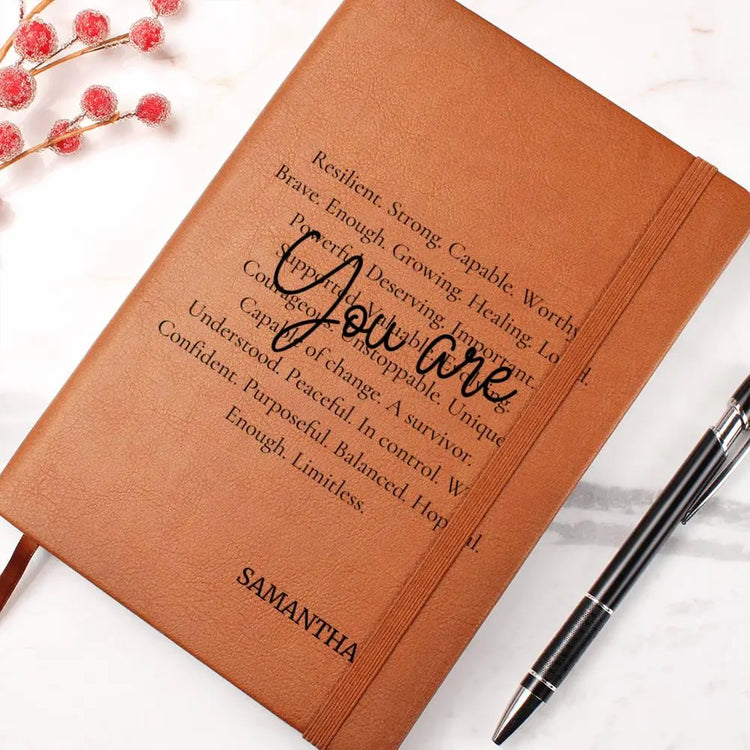 Resilient. Strong. Capable. Worthy
Brave. Enough. Growing. Healing. Loved.
Powerful. Deserving. Important.
Supported. Valuable.
You are
Courageous. Unstoppable. Unique
Capable of change. A survivor.
Understood. Peaceful. In control.
Confident. Purposeful. Balanced. Hopeful.
Enough. Limitless.
SAMANTHA